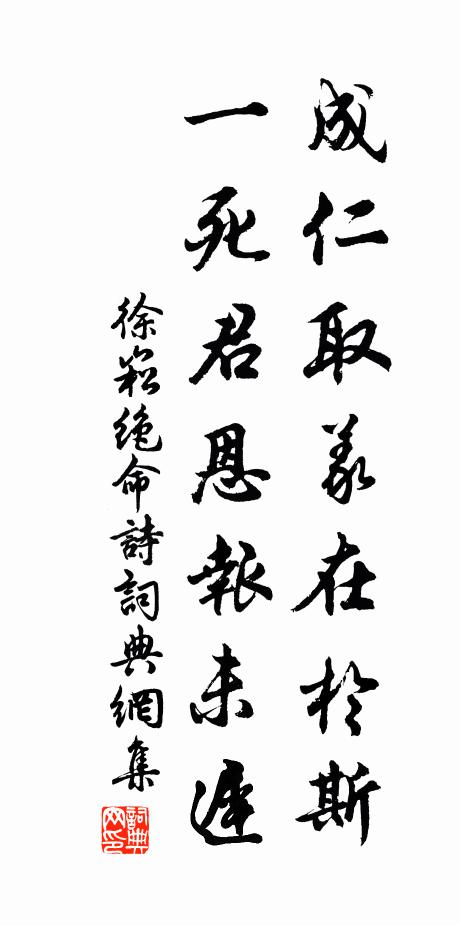 成仁取義在於斯
一死君恩報未遲
徐崧絶命詩詞典網集
詞典网印